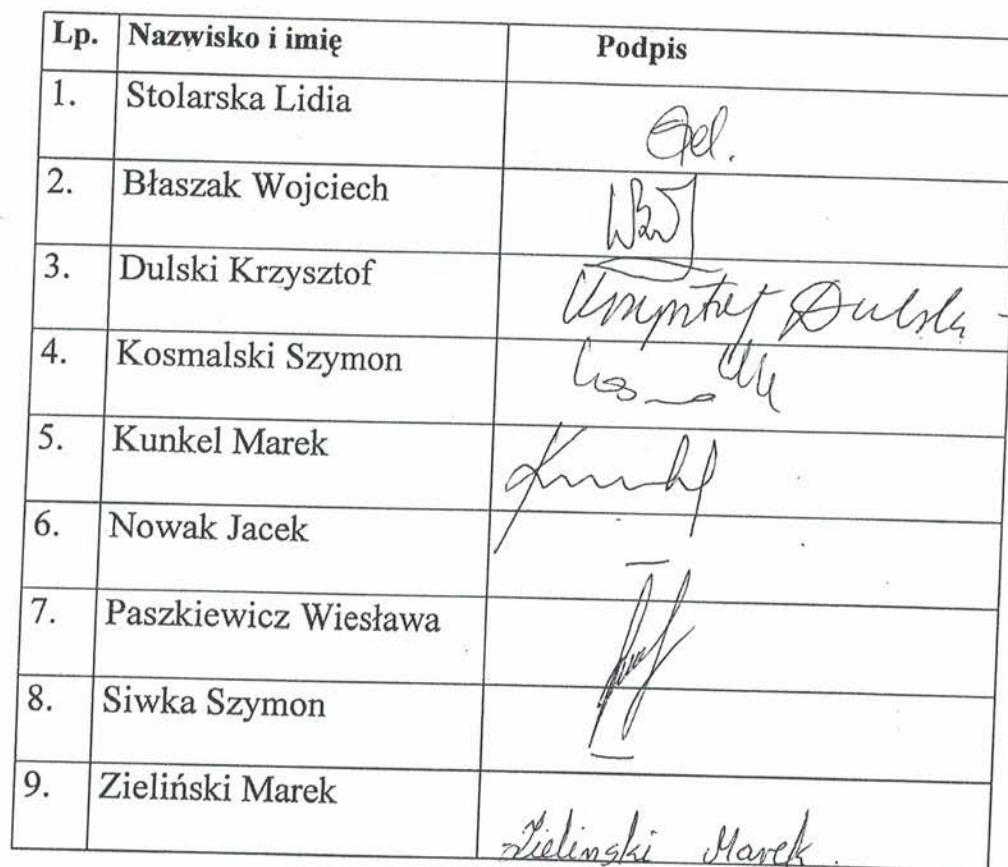 Lp. Nazwisko i imię Podpis
1. Stolarska Lidia
2. Błaszak Wojciech
3. Dulski Krzysztof Krzysztof Dulski
4. Kosmalski Szymon
5. Kunkel Marek
6. Nowak Jacek —
7. Paszkiewicz Wiesława
8. Siwka Szymon —
9. Zieliński Marek Zielinski Marek